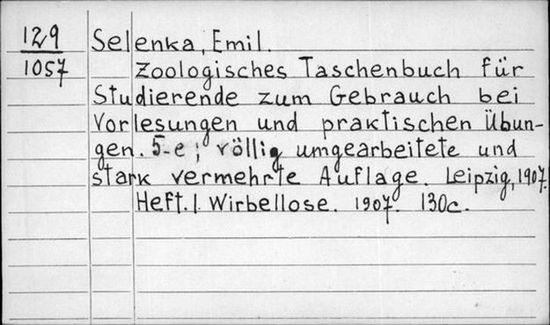 129
1057
Selenka, Emil.
Zoologisches Taschenbuch für
Studierende zum Gebrauch bei
Vorlesungen und praktischen Übun-
gen. 5-e; völlig umgearbeitete und
stark vermehrte Auflage. Leipzig, 1907.
Heft. I. Wirbellose. 1907. 130c.